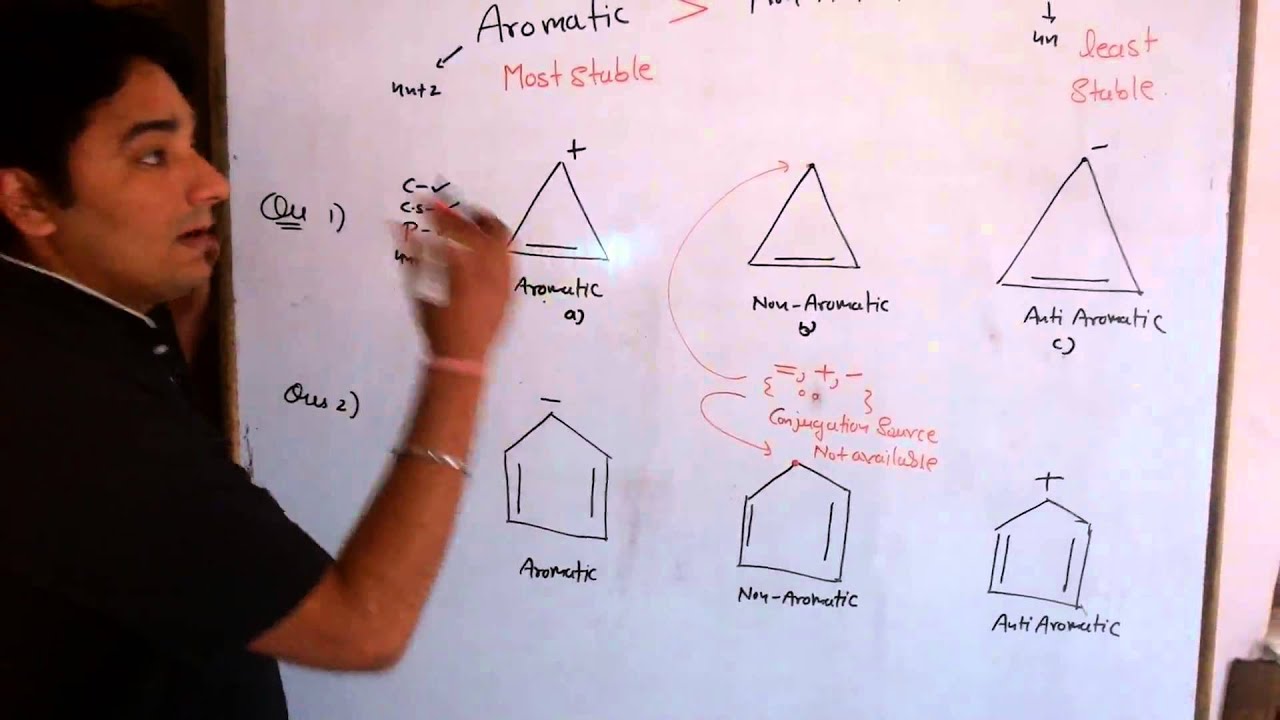 Aromatic >
4n+2
Most Stable
4n
least
Stable
Que 1)
C-✓
C.S-✓
P-
4n
+
Aromatic
a)
Non-Aromatic
b)
-
Anti Aromatic
c)
{ =, +, - }
Conjugation Source
Not available
Ques 2)
-
Aromatic
Non-Aromatic
+
Anti Aromatic